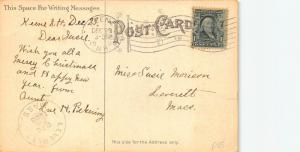 This Space For Writing Messages
Keene N.H. Dec 23.
Dear Susie.
Wish you all
Merry Christmas
and Happy new
year. from
Aunt
M. Pickering
POST CARD
DEC 23
Miss Susie Morrison
Leverett
Mass.
This side for the Address only.